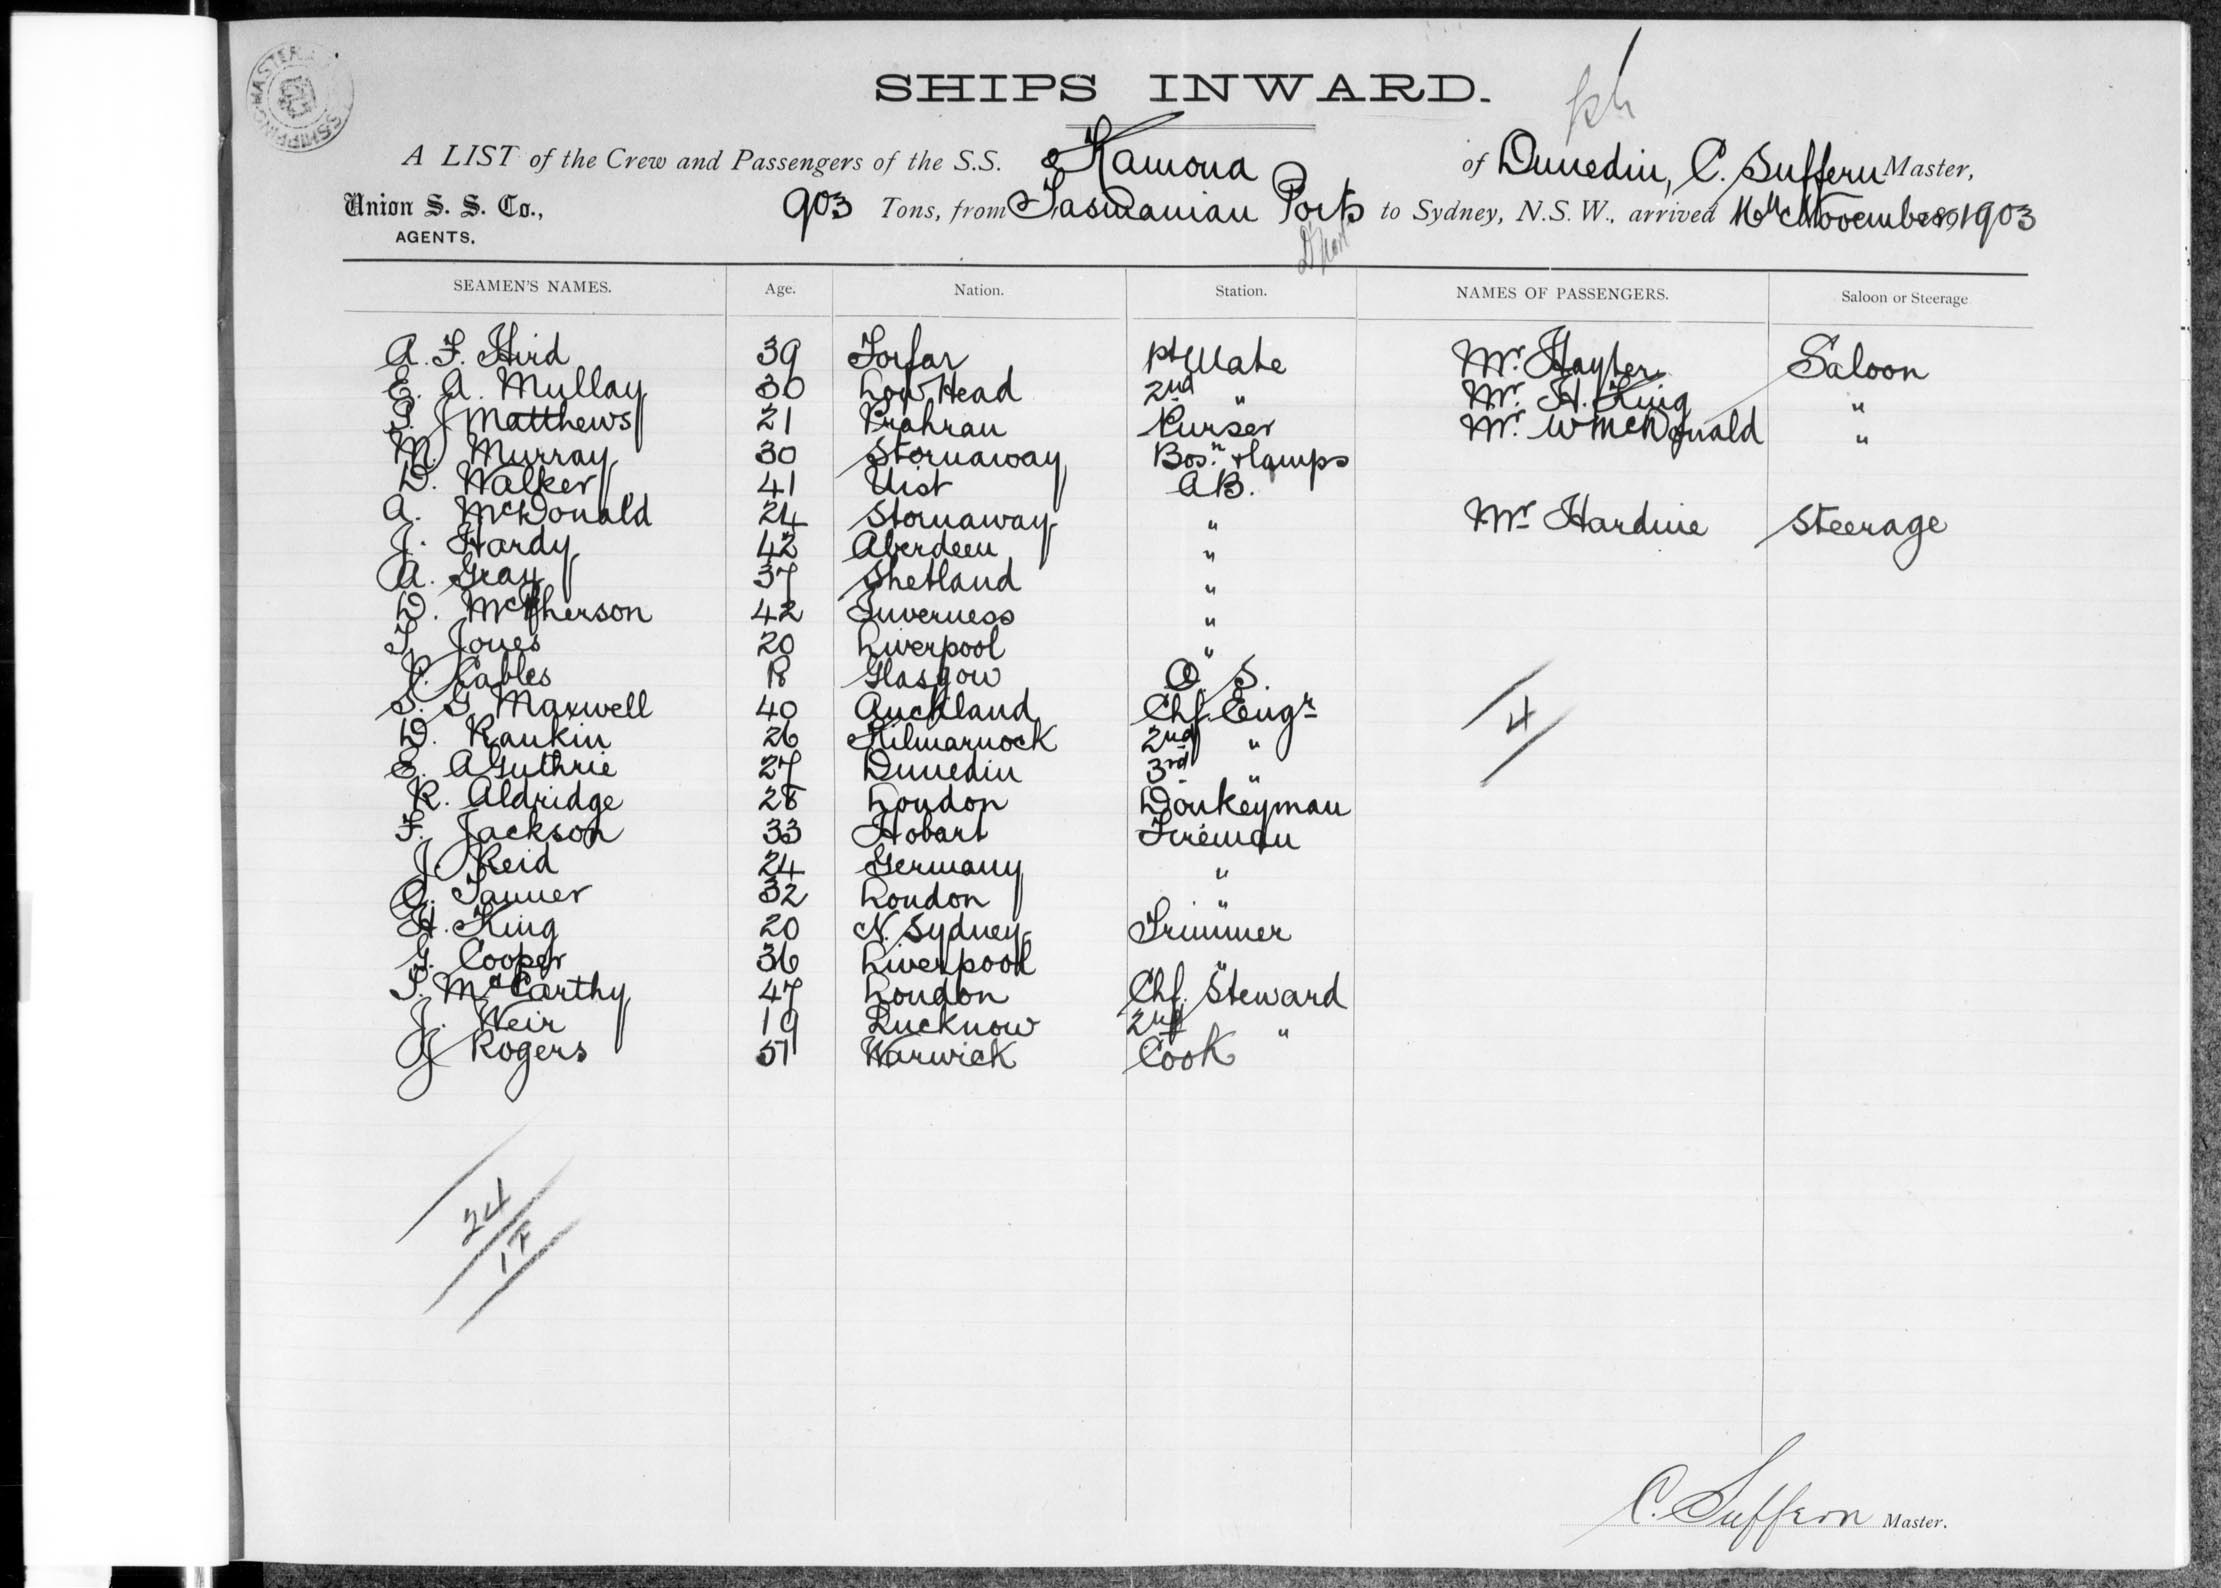 SHIPS INWARD.
A LIST of the Crew and Passengers of the S.S. Kamona of Dunedin, C. Suffern Master,
Union S. S. Co., 903 Tons, from Tasmanian Ports to Sydney, N.S.W., arrived 16th November 1903
AGENTS.
SEAMEN'S NAMES. Age. Nation. Station. NAMES OF PASSENGERS. Saloon or Steerage
A. F. Hird 39 Forfar 1st Mate Mr. Hayter Saloon
E. A. Mullay 30 Low Head 2nd " Mr. H. King "
P. J Matthews 21 Prahran Purser Mr. W McDonald "
M. Murray 30 Stornaway Bosn & Lamps
D. Walker 41 Uist A.B.
A. McDonald 24 Stornaway " Mr Hardine Steerage
J. Hardy 42 Aberdeen "
A. Gray 37 Shetland "
D. McPherson 42 Inverness "
T. Jones 20 Liverpool "
P. Cables 18 Glasgow O. S.
S. G. Maxwell 40 Auckland Chf. Engr
D. Rankin 26 Kilmarnock 2nd "
E. A Guthrie 27 Dunedin 3rd "
R. Aldridge 28 London Donkeyman
F. Jackson 33 Hobart Fireman
J. Reid 24 Germany "
O. Tanner 32 London "
H. King 20 N. Sydney Trimmer
G. Cooper 36 Liverpool "
P. McCarthy 47 London Chf. Steward
J. Weir 19 Lucknow 2nd "
J Rogers 51 Warwick Cook
4
24
C. Suffern Master.